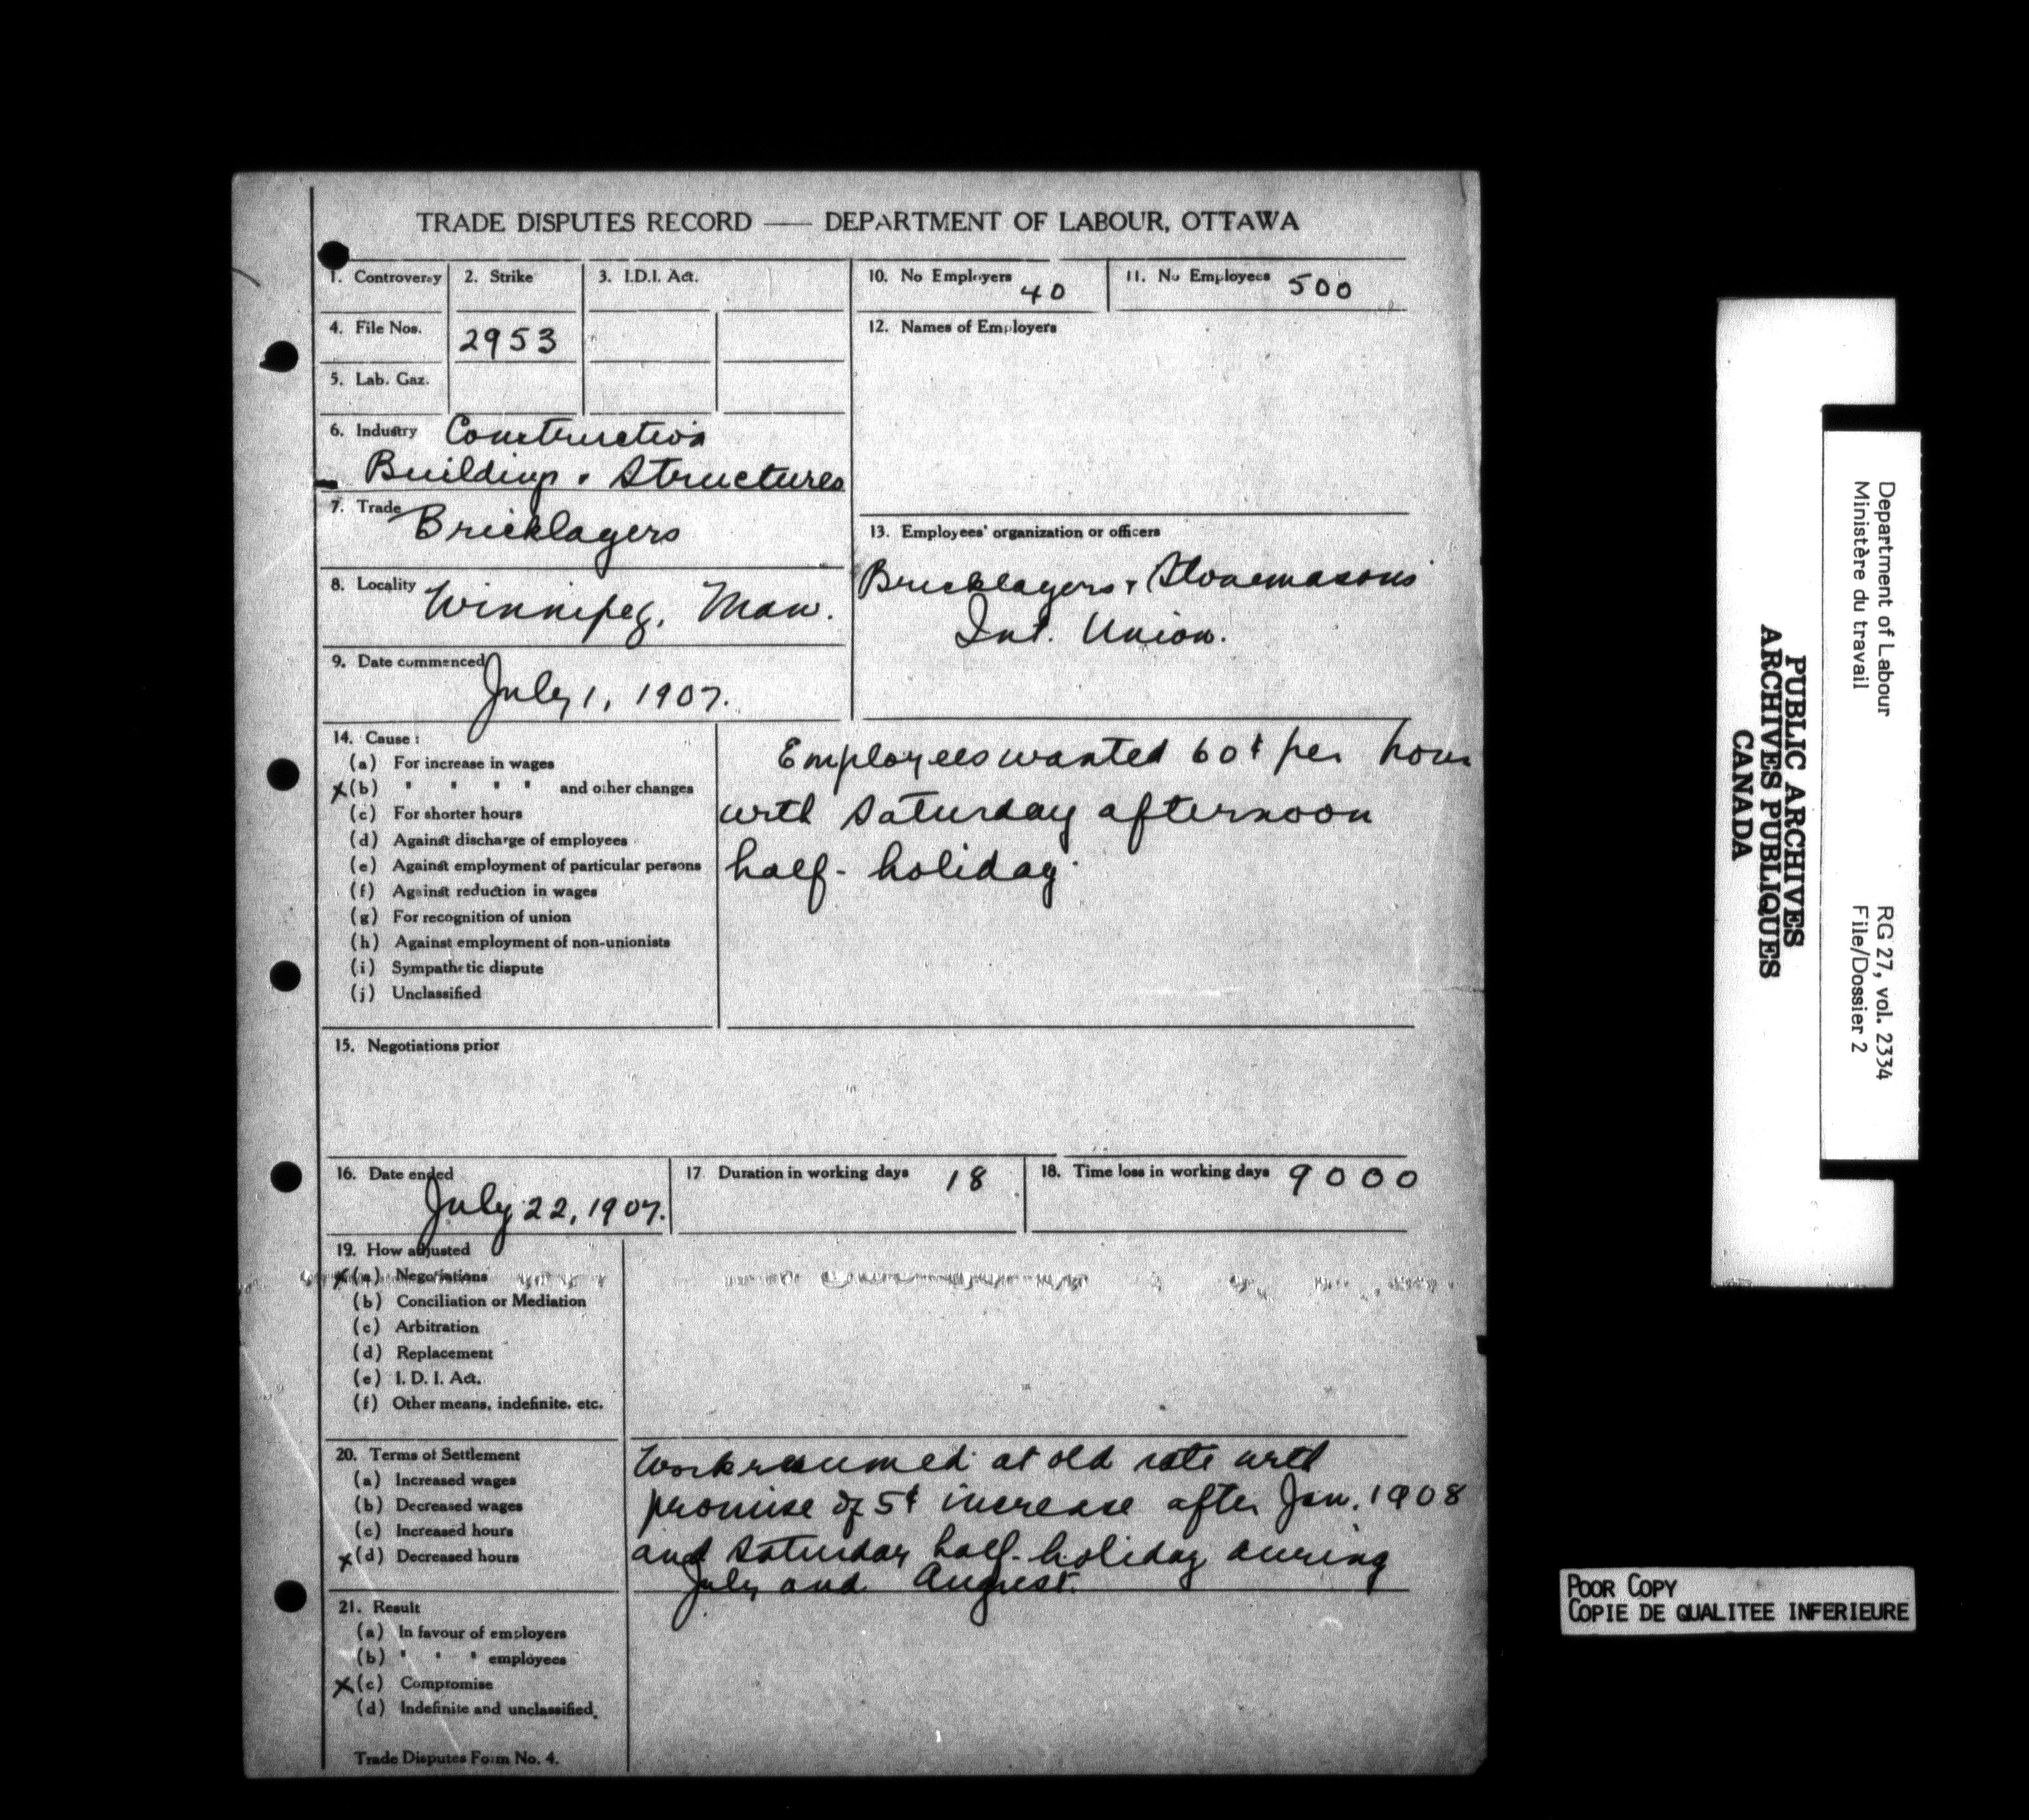 TRADE DISPUTES RECORD — DEPARTMENT OF LABOUR, OTTAWA
1. Controversy
2. Strike
3. I.D.I. Act.
4. File Nos. 2953
5. Lab. Gaz.
6. Industry Construction
Buildings & Structures
7. Trade Bricklayers
8. Locality Winnipeg, Man.
9. Date commenced July 1, 1907.
10. No Employers 40
11. No Employees 500
12. Names of Employers
13. Employees' organization or officers
Bricklayers & Stonemasons
Int. Union.
14. Cause :
(a) For increase in wages
x (b) " " " " and other changes
(c) For shorter hours
(d) Against discharge of employees
(e) Against employment of particular persons
(f) Against reduction in wages
(g) For recognition of union
(h) Against employment of non-unionists
(i) Sympathetic dispute
(j) Unclassified
Employees wanted 60¢ per hour
with Saturday afternoon
half-holiday.
15. Negotiations prior
16. Date ended July 22, 1907.
17 Duration in working days 18
18. Time loss in working days 9000
19. How adjusted
x (a) Negotiations
(b) Conciliation or Mediation
(c) Arbitration
(d) Replacement
(e) I. D. I. Act.
(f) Other means, indefinite, etc.
20. Terms of Settlement
(a) Increased wages
(b) Decreased wages
(c) Increased hours
x (d) Decreased hours
Work resumed at old rate with
promise of 5¢ increase after Jan. 1908
and Saturday half-holiday during
July and August.
21. Result
(a) In favour of employers
(b) " " " employees
x (c) Compromise
(d) Indefinite and unclassified.
Trade Disputes Form No. 4.
PUBLIC ARCHIVES
ARCHIVES PUBLIQUES
CANADA
Department of Labour
Ministère du travail
RG 27, vol. 2334
File/Dossier 2
POOR COPY
COPIE DE QUALITEE INFERIEURE